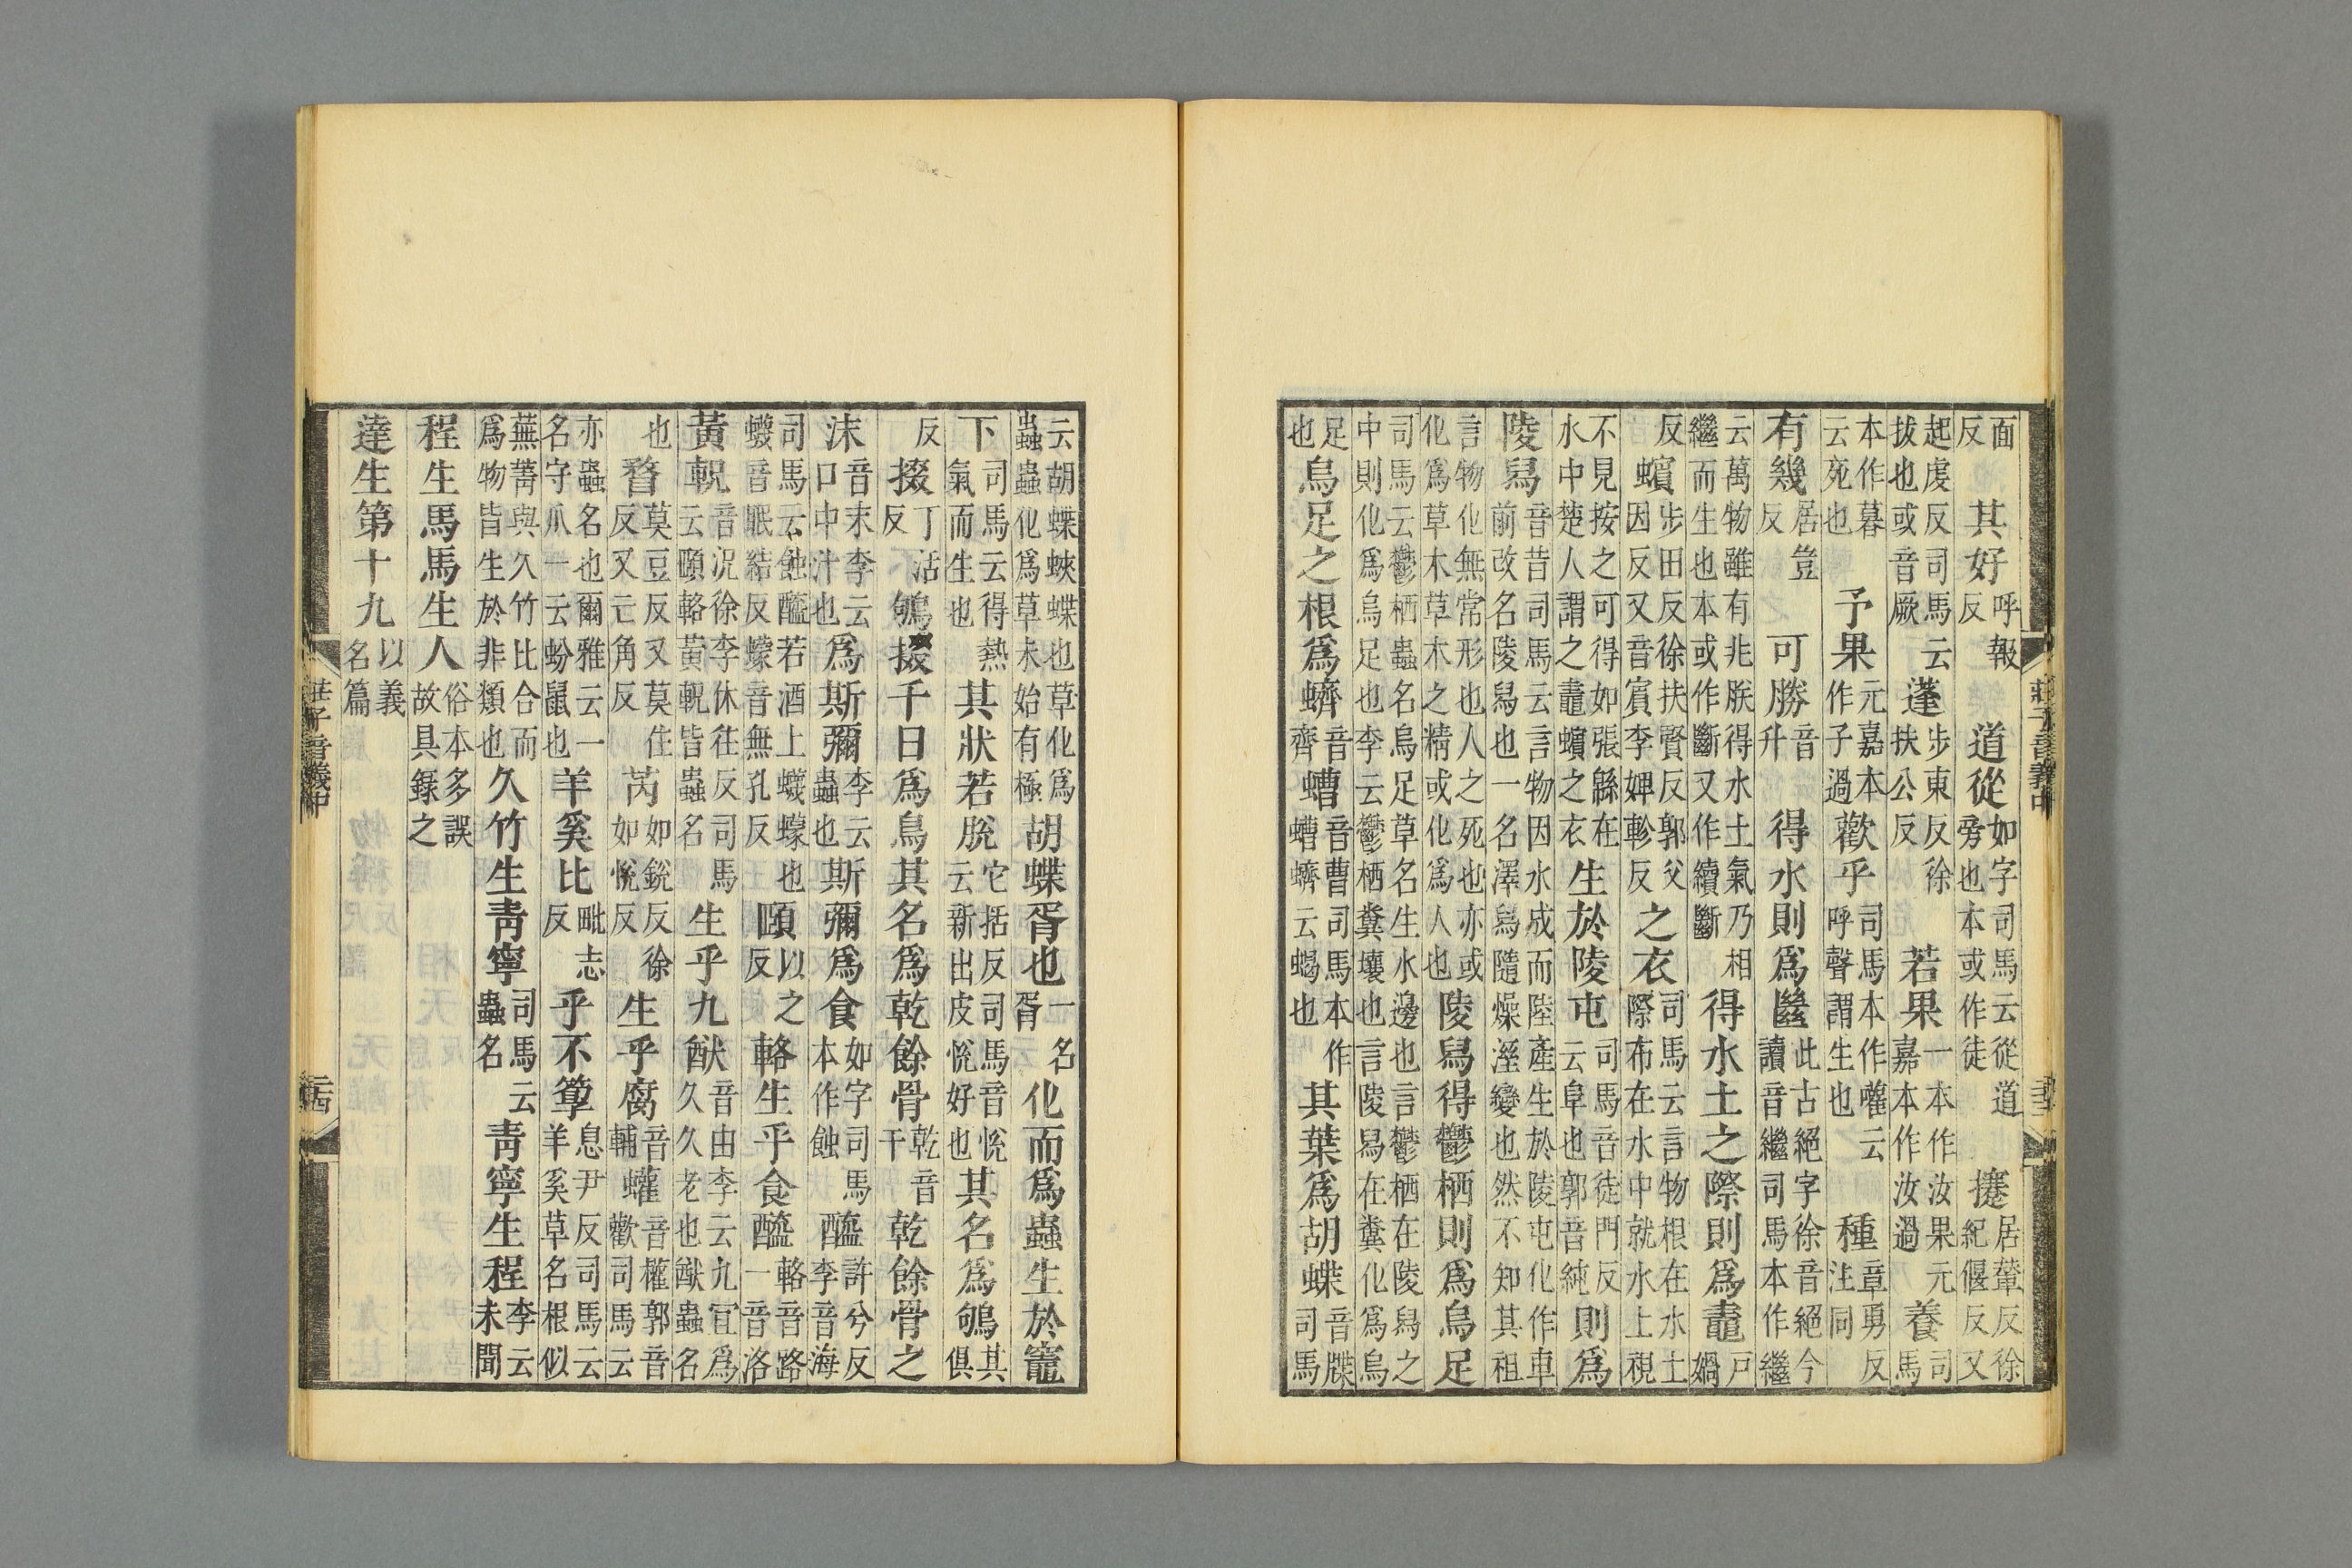 莊子音義中
面反其好呼報反道從如字司馬云從道旁也本或作徒攓居輦反徐紀偃反又
起虔反司馬云拔也或音厥蓬步東反徐扶公反若果一本作汝果元嘉本作汝過養司馬
本作暮云死也予果元嘉本作子過歡乎司馬本作嚾云呼聲謂生也種章勇反注同
有幾居豈反可勝音升得水則爲㡭此古絕字徐音絕今讀音繼司馬本作繼
云萬物雖有兆朕得水土氣乃相繼而生也本或作斷又作續斷得水土之際則爲鼃戸媧
反蠙步田反徐扶賢反郭父因反又音賓李婢軫反之衣司馬云言物根在水土際布在水中就水上視
不見按之可得如張緜在水中楚人謂之鼃蠙之衣生於陵屯司馬音徒門反云阜也郭音純則爲
陵舄音昔司馬云言物因水成而陸產生於陵屯化作車前改名陵舄也一名澤舄隨燥溼變也然不知其祖
言物化無常形也人之死也亦或化爲草木草木之精或化爲人也陵舄得鬱栖則爲烏足
司馬云鬱栖蟲名烏足草名生水邊也言鬱栖在陵舄之中則化爲烏足也李云鬱栖糞壤也言陵舄在糞化爲烏
足也烏足之根爲蠐音齊螬音曹司馬本作螬蠐云蝎也其葉爲胡蝶音牒司馬
云胡蝶蛺蝶也草化爲蟲蟲化爲草未始有極胡蝶胥也一名胥化而爲蟲生於竈
下司馬云得熱氣而生也其狀若脫它括反司馬音悅云新出皮悅好也其名爲鴝其俱
反掇丁活反鴝掇千日爲鳥其名爲乾餘骨乾音干乾餘骨之
沫音末李云口中汁也爲斯彌李云蟲也斯彌爲食如字司馬本作蝕醯許兮反李音海
司馬云蝕醯若酒上蠛蠓也蠛音眠結反蠓音無孔反頤以之反輅生乎食醯輅音路一音洛
黃軦音況徐李休往反司馬云頤輅黃軦皆蟲名生乎九猷音由李云九宜爲久久老也猷蟲名
也瞀莫豆反又莫住反又亡角反芮如銳反徐如悅反生乎腐音輔蠸音權郭音歡司馬云
亦蟲名也爾雅云一名守爪一云蚡鼠也羊奚比毗志反乎不箰息尹反司馬云羊奚草名根似
蕪菁與久竹比合而爲物皆生於非類也久竹生靑寧司馬云蟲名靑寧生程李云未聞
程生馬馬生人俗本多誤故具錄之
達生第十九以義名篇
莊子音義中
二四